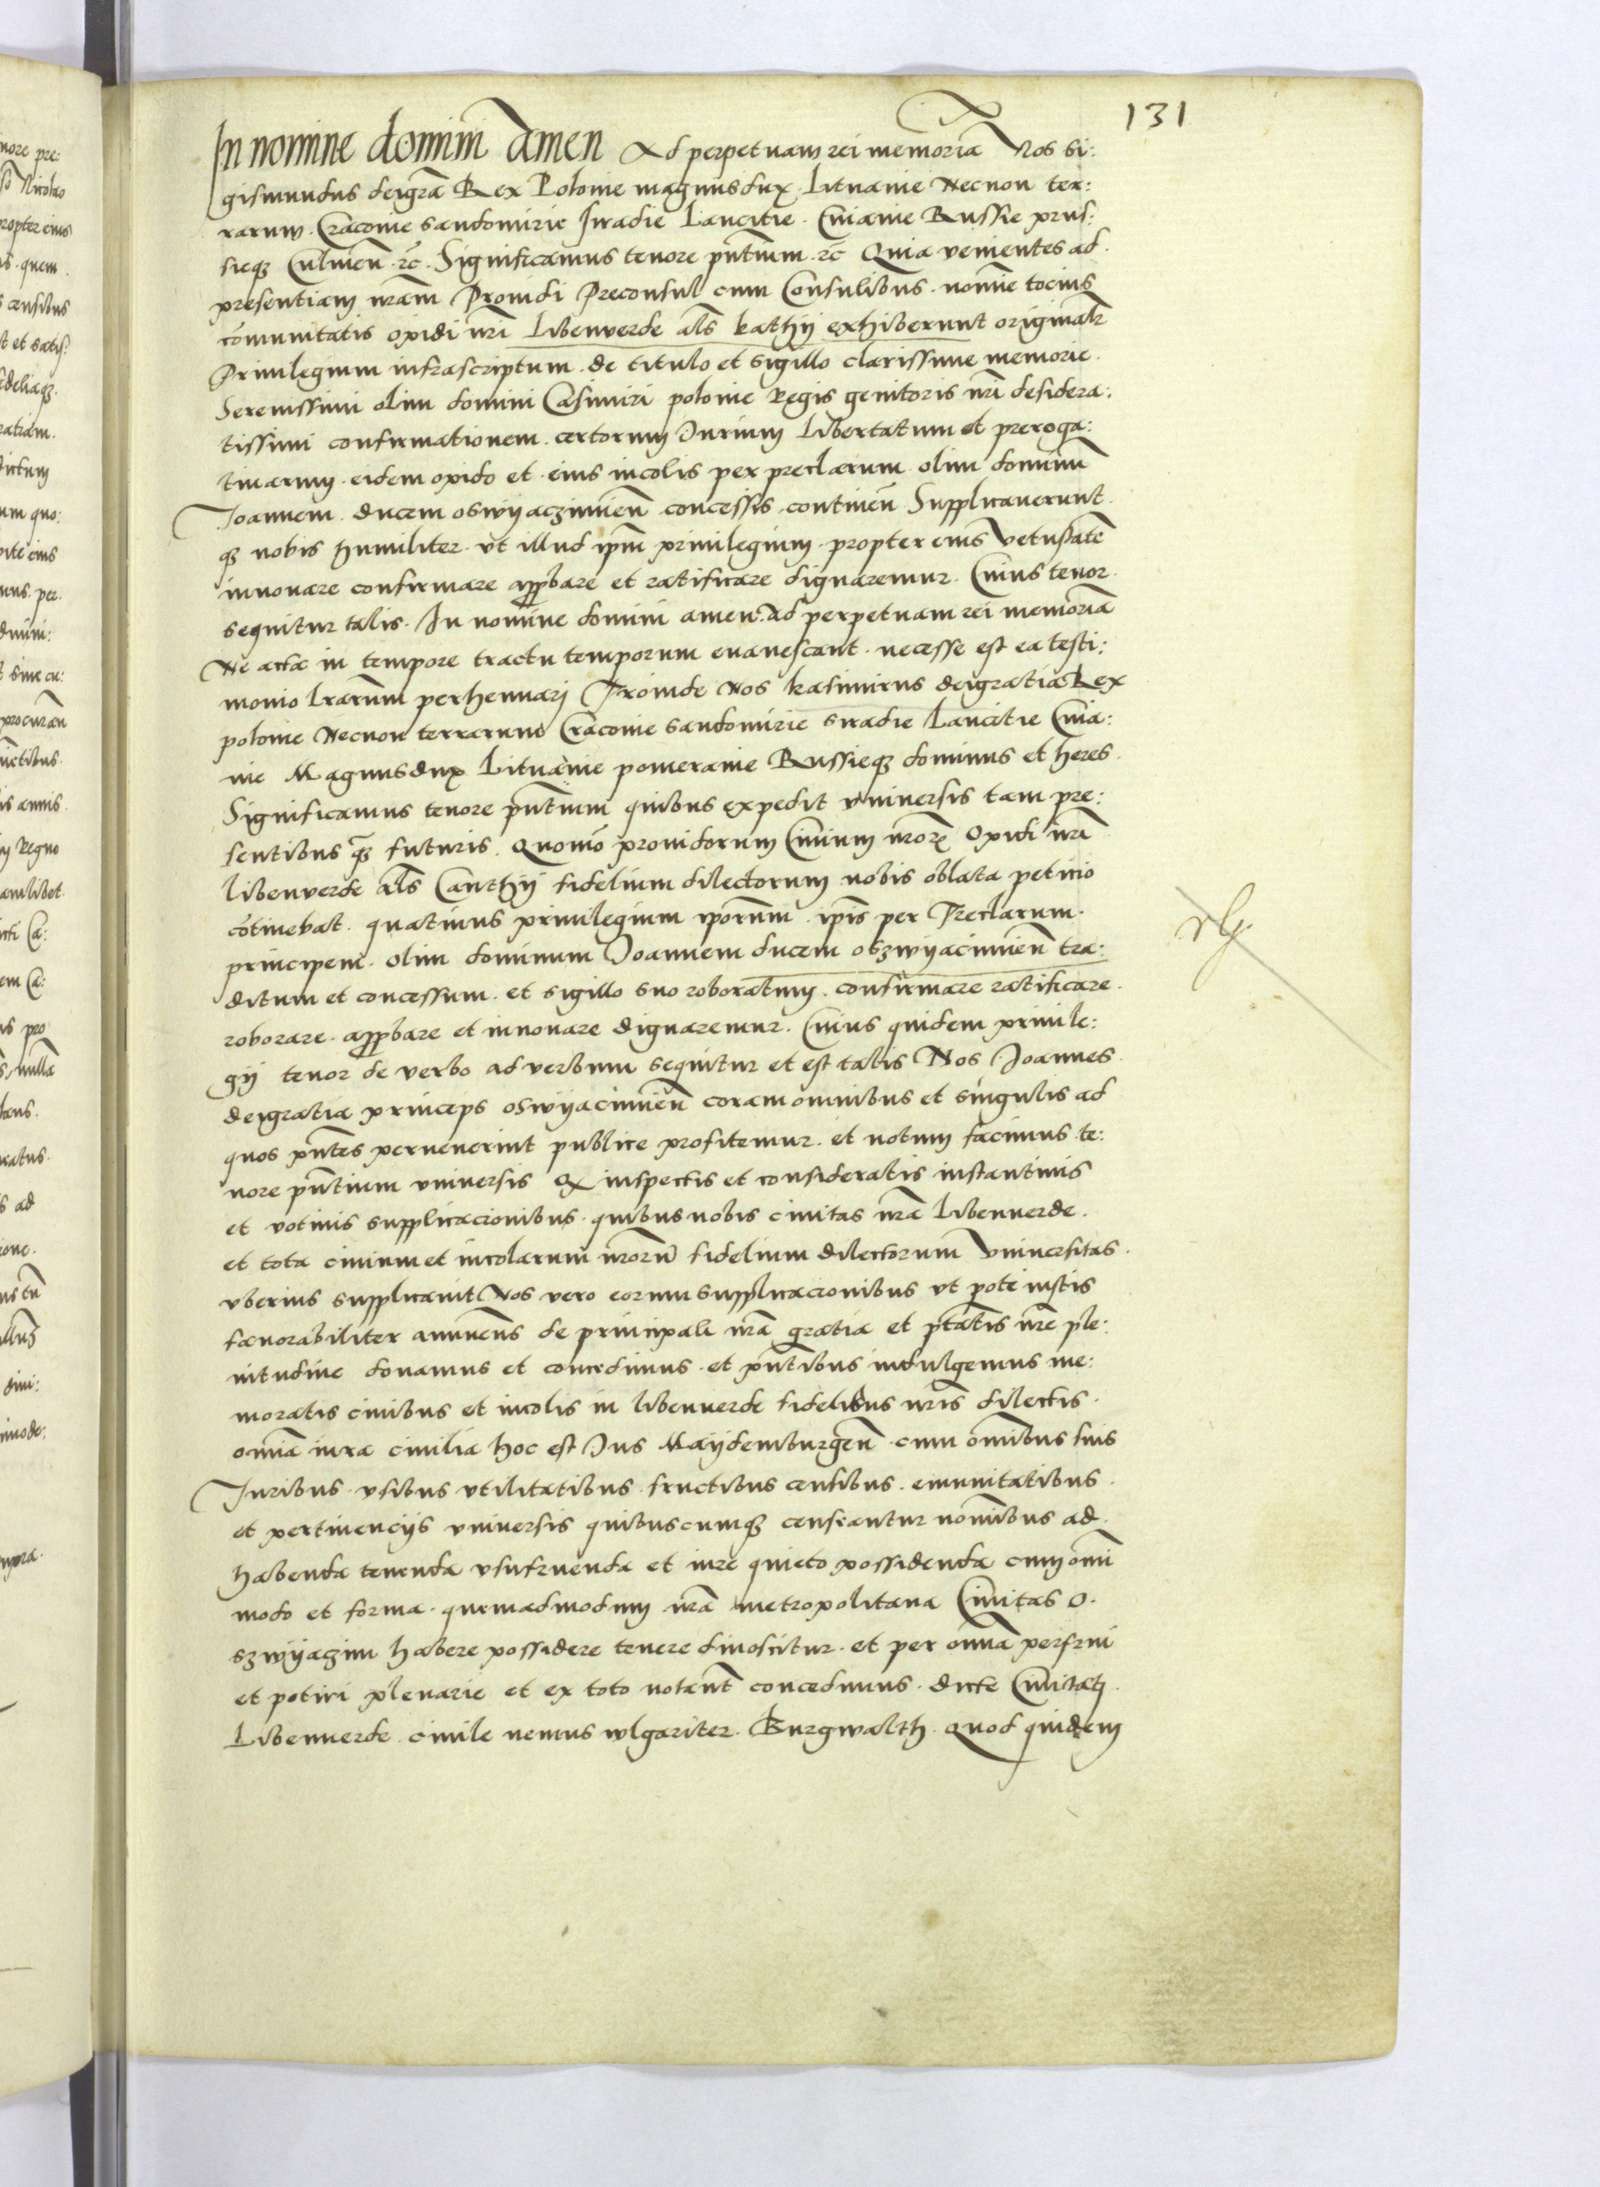 131
In nomine domini Amen Ad perpetuam rei memoriā Nos si:
gismundus deigrā Rex Polonie magnusdux Lituanie Necnon ter:
rarum. Cracovie sandomirie siradie Lancitie. Cuiavie Russie prus:
sieqꝫ Culmeñ ⁊c̄. Significamus tenore pn̄tium. ⁊c̄ Quia venientes ad.
presentiam nrām Providi Preconsul cum Consulibus. nomīe tocius
cōmunitatis opidi nrī Libenverde als̄ kathÿ exhiberunt originale
Privilegium infrascriptum. de titulo et sigillo clarissime memorie.
Serenissimi olim domini Casimiri polonie Regis genitoris nrī desidera:
tissimi confirmationem. certorum Jurium Libertatum et preroga:
tivarum. eidem opido et. eius incolis per preclarum. olim dominū
Joannem. ducem oswÿacziminieñ concessis. continēn Supplicaverunt.
qꝫ nobis humiliter. ut illud ipm̄ privilegium. propter eius Vetustatē
innovare confirmare approbare et ratificare dignaremur. Cuius tenor.
sequitur talis. In nomine domini amen. ad perpetuam rei memoriā
Ne acta in tempore tractu temporum evanescant. necesse est ea testi:
monio lrārum perhennari Proinde Nos kasimirus deigratia Rex
polonie Necnon terrarum Cracovie sandomirie siradie Lancitie Cuia:
vie Magnusdux Lituanie pomeranie Russieqꝫ dominus et heres.
Significamus tenore pn̄tium quibus expedit universis tam pre:
sentibus qꝫ futuris. Quomō providorum Civium nrōrꝫ Opidi nrī
libenverde als̄ Canthÿ fidelium dilectorum nobis oblata peticio
cōtinebat. quatinus privilegium ipōrum. ipīs per Preclarum.
principem. olim dominum Joannem ducem oszwÿacimieñ tra:
ditum et concessum. et sigillo suo roboratum. confirmare ratificare.
roborare. approbare et innovare dignaremur. Cuius quidem privile:
gÿ tenor de verbo ad verbum sequitur et est talis Nos Joannes.
deigratia princeps oswÿacimieñ coram omnibus et singulis ad
quos pn̄tes pervenerint publice profitemur. et notum facimus te:
nore pn̄tium universis Qꝫ inspectis et consideratis instantivis
et votivis supplicacionibus. quibus nobis civitas nrā Libenverde.
et tota civium et incolarum nrōrum fidelium dilectorum Universitas.
uberius supplicavit Nos vero eorum supplicacionibus ut pote iustis
favorabiliter annuens̄ de principali nrā gratia et ptātis nrē ple:
nitudine donamus et concedimus. et pn̄tibus indulgemus me:
moratis civibus et incolis in libenverde fidelibus nrīs dilectis.
omīa iura civilia hoc est Jus Maÿdemburgeñ. cum omībus suis
Juribus. usibus utilitatibus. fructibus censibus. emunitatibus.
et pertinencÿs universis quibuscumqꝫ censeantur nomībus ad.
habenda tenenda usufruenda et iure quieto possidenda cum omī
modo et forma. quemadmodum nrā metropolitana Civitas O.
szwÿaczim habere possidere tenere dinoscitur. et per omīa perfrui
et potiri plenarie et ex toto concedimus. dicte Civitati.
Libenverde civile nemus wlgariter. Burgwalth. Quod quidem